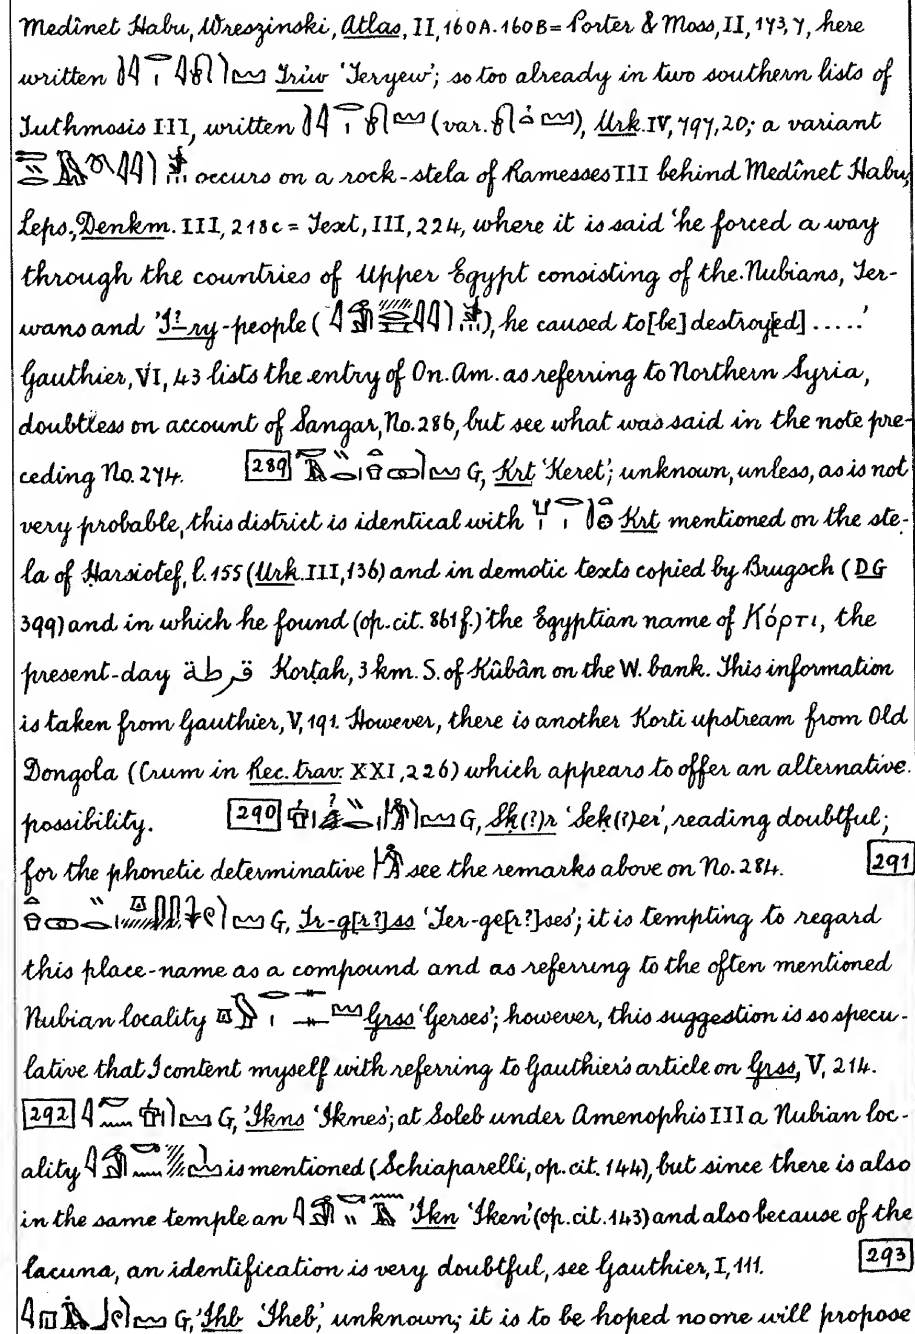 Medînet Habu, Wreszinski, Atlas, II, 160A. 160B = Porter & Moss, II, 173, 7, here
written Triw 'Teryew'; so too already in two southern lists of
Tuthmosis III, written (var. ), Urk. IV, 797, 20; a variant
occurs on a rock-stela of Ramesses III behind Medînet Habu,
Leps., Denkm. III, 218c = Text, III, 224, where it is said 'he forced a way
through the countries of Upper Egypt consisting of the Nubians, Ter-
wans and -ry-people ( ), he caused to [be] destroy[ed] .....'
Gauthier, VI, 43 lists the entry of On. Am. as referring to Northern Syria,
doubtless on account of Sangar, No. 286, but see what was said in the note pre-
ceding No. 274. 289 G, Krt 'Keret'; unknown, unless, as is not
very probable, this district is identical with Krt mentioned on the ste-
la of Ḥarsiotef, l. 155 (Urk. III, 136) and in demotic texts copied by Brugsch (DG
399) and in which he found (op. cit. 861 f.) the Egyptian name of Κόρτι, the
present-day قرطة Korṭah, 3 km. S. of Kûbân on the W. bank. This information
is taken from Gauthier, V, 191. However, there is another Korti upstream from Old
Dongola (Crum in Rec. trav. XXI, 226) which appears to offer an alternative
possibility. 290 G, Sḳ(?)r 'Seḳ(?)er', reading doubtful;
for the phonetic determinative see the remarks above on No. 284. 291
G, Tr-g[r?]ss 'Ter-ge[r?]ses'; it is tempting to regard
this place-name as a compound and as referring to the often mentioned
Nubian locality Grss 'Gerses'; however, this suggestion is so specu-
lative that I content myself with referring to Gauthier's article on Grss, V, 214.
292 G, 'Ikns 'Iknes'; at Soleb under Amenophis III a Nubian loc-
ality is mentioned (Schiaparelli, op. cit. 144), but since there is also
in the same temple an 'Ikn 'Iken' (op. cit. 143) and also because of the
lacuna, an identification is very doubtful, see Gauthier, I, 111. 293
G, 'Ihb 'Iheb', unknown; it is to be hoped no one will propose